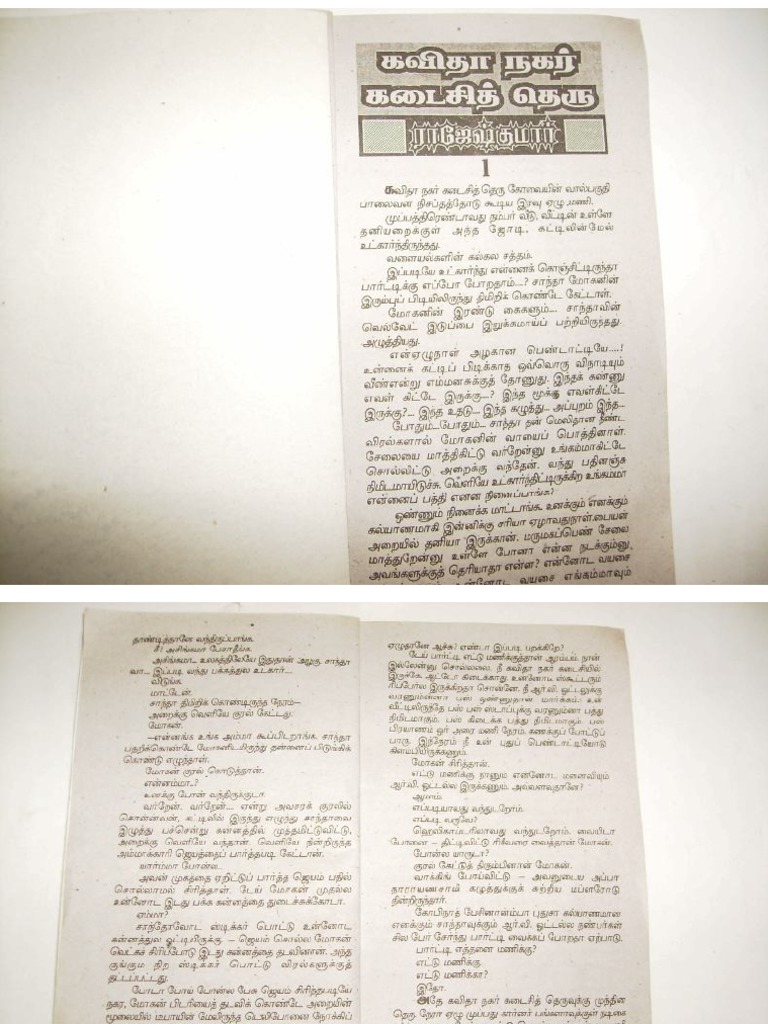 கவிதா நகர்
கடைசித் தெரு
ராஜேஷ்குமார்
1
கவிதா நகர் கடைசித் தெரு கோவையின் வால்பகுதி
பாலைவன நிசப்தத்தோடு கூடிய இரவு ஏழு மணி.
முப்பத்திரெண்டாவது நம்பர் வீடு. வீட்டின் உள்ளே
தனியறைக்குள் அந்த ஜோடி, கட்டிலின்மேல்
உட்கார்ந்திருந்தது.
வளையல்களின் கல்கல சத்தம்.
இப்படியே உட்கார்ந்து என்னைக் கொஞ்சிட்டிருந்தா
பார்ட்டிக்கு எப்போ போறதாம்...? சாந்தா மோகனின்
இரும்புப் பிடியிலிருந்து திமிறிக் கொண்டே கேட்டாள்.
மோகனின் இரண்டு கைகளும்... சாந்தாவின்
வெல்வேட் இடுப்பை இறுக்கமாய்ப் பற்றியிருந்தது.
அழுத்தியது.
என்ஏழுநாள் அழகான பெண்டாட்டியே....!
உன்னைக் கட்டிப் பிடிக்காத ஒவ்வொரு விநாடியும்
வீண்என்று எம்மனசுக்குத் தோணுது. இந்தக் கண்ணு
எவள் கிட்டே இருக்கு...? இந்த மூக்கு எவள்கிட்டே
இருக்கு?... இந்த உதடு... இந்த கழுத்து... அப்புறம் இந்த...
போதும்...போதும்... சாந்தா தன் மெலிதான நீண்ட
விரல்களால் மோகனின் வாயைப் பொத்தினாள்.
சேலையை மாத்திகிட்டு வர்றேன்னு உங்கம்மாகிட்டே
சொல்லிட்டு அறைக்கு வந்தேன். வந்து பதினஞ்சு
நிமிடமாயிடுச்சு. வெளியே உட்கார்ந்திட்டிருக்கிற உங்கம்மா
என்னைப் பத்தி என்ன நினைப்பாங்க?
ஒண்ணும் நினைக்க மாட்டாங்க. உனக்கும் எனக்கும்
கல்யாணமாகி இன்னிக்கு சரியா ஏழாவதுநாள்.பையன்
அறையில் தனியா இருக்கான். மருமகப்பெண் சேலை
மாத்துறேன்னு உள்ளே போனா என்ன நடக்கும்னு
அவங்களுக்குத் தெரியாதா என்ன? என்னோட வயசை
உன்னோட வயசை எங்கம்மாவும்
தாண்டித்தானே வந்திருப்பாங்க.
சீ! அசிங்கமா பேசாதீங்க.
அசிங்கமா... உலகத்திலேயே இதுதான் அழகு. சாந்தா
வா... இப்படி வந்து பக்கத்துல உட்கார்...
விடுங்க.
மாட்டேன்.
சாந்தா திமிறிக் கொண்டிருந்த நேரம்—
அறைக்கு வெளியே குரல் கேட்டது.
மோகன்.
—என்னங்க உங்க அம்மா கூப்பிடறாங்க. சாந்தா
பதறிக்கொண்டே மோகனிடமிருந்து தன்னைப் பிடுங்கிக்
கொண்டு எழுந்தாள்.
மோகன் குரல் கொடுத்தான்.
என்னம்மா..?
உனக்கு போன் வந்திருக்குடா.
வர்றேன்.. வர்றேன்... என்று அவசரக் குரலில்
சொன்னவன், கட்டிலில் இருந்து எழுந்து சாந்தாவை
இழுத்து பச்சென்று கன்னத்தில் முத்தமிட்டுவிட்டு,
அறைக்கு வெளியே வந்தான். வெளியே நின்றிருந்த
அம்மாக்காரி ஜெயத்தைப் பார்த்தபடி கேட்டான்.
யார்ம்மா போன்ல.
அவன் முகத்தை ஏறிட்டுப் பார்த்த ஜெயம் பதில்
சொல்லாமல் சிரித்தாள். டேய் மோகன் முதல்ல
உன்னோட இடது பக்க கன்னத்தை துடைச்சுக்கோடா.
எம்மா?
சாந்தாவோட ஸ்டிக்கர் பொட்டு உன்னோட
கன்னத்துல ஒட்டியிருக்கு. — ஜெயம் சொல்ல மோகன்
வெட்கச் சிரிப்போடு இடது கன்னத்தை தடவினான். அந்த
குங்கும நிற ஸ்டிக்கர் பொட்டு விரல்களுக்குத்
தட்டுப்பட்டது.
போடா போய் போன்ல பேசு ஜெயம் சிரித்தபடியே
நகர, மோகன் பிடரியைத் தடவிக் கொண்டே அறையின்
மூலையில் டீபாயின் மேலிருந்த டெலிபோனை நோக்கிப்
ஏழுதானே ஆச்சு! ஏண்டா இப்படி பறக்கிறே?
டேய் பார்ட்டி எட்டு மணிக்குத்தான் ஆரம்பம். நான்
இல்லேன்னு சொல்லலை. நீ கவிதா நகர் கடைசியில்
இருக்கே. ஆட்டோ கிடைக்காது. உன்னோட ஸ்கூட்டரும்
ரிப்பேர்ல இருக்கிறதா சொன்னே. நீ ஆர்.வி. ஓட்டலுக்கு
வரணும்ன்னா பஸ் ஒண்ணுதான் மார்க்கம். உன்
வீட்டிலிருந்தே பஸ் பஸ் ஸ்டாப்புக்கு வரணும்னா பத்து
நிமிடமாகும். பஸ் கிடைக்க பத்து நிமிடமாகும். பஸ்
பிரயாணம் ஓர் அரை மணி நேரம். கணக்குப் போட்டுப்
பாரு. இந்நேரம் நீ உன் புதுப் பெண்டாட்டியோடு
கிளம்பியிருக்கணும்.
மோகன் சிரித்தான்.
எட்டு மணிக்கு நானும் என்னோட மனைவியும்
ஆர்.வி. ஓட்டல்ல இருக்கணும். அவ்வளவுதானே?
ஆமாம்.
எப்படியாவது வந்துடறோம்.
எப்படி வருவே?
ஹெலிகாப்டரிலாவது வந்துடறோம். வையிடா
போனை — திட்டிவிட்டு ரிசீவரை வைத்தான் மோகன்.
போன்ல யாருடா?
குரல் கேட்டுத் திரும்பினான் மோகன்.
வாக்கிங் போய்விட்டு — அவனுடைய அப்பா
நாராயணசாமி கழுத்துக்குச் சுற்றிய மப்ளரோடு
நின்றிருந்தார்.
கோபிநாத் பேசினான்ம்பா புதுசா கல்யாணமான
எனக்கும் சாந்தாவுக்கும் ஆர்.வி. ஓட்டல்ல நண்பர்கள்
சில பேர் சேர்ந்து பார்ட்டி வைக்கப் போறதா ஏற்பாடு.
பார்ட்டி எத்தனை மணிக்கு?
எட்டு மணிக்கு.
எட்டு மணிக்கா?
இதோ.
அதே கவிதா நகர் கடைசித் தெருவுக்கு முந்தின
தெரு. நேரா ஏழு முப்பது கார்னர் பங்களாவுக்குள் நடிகை